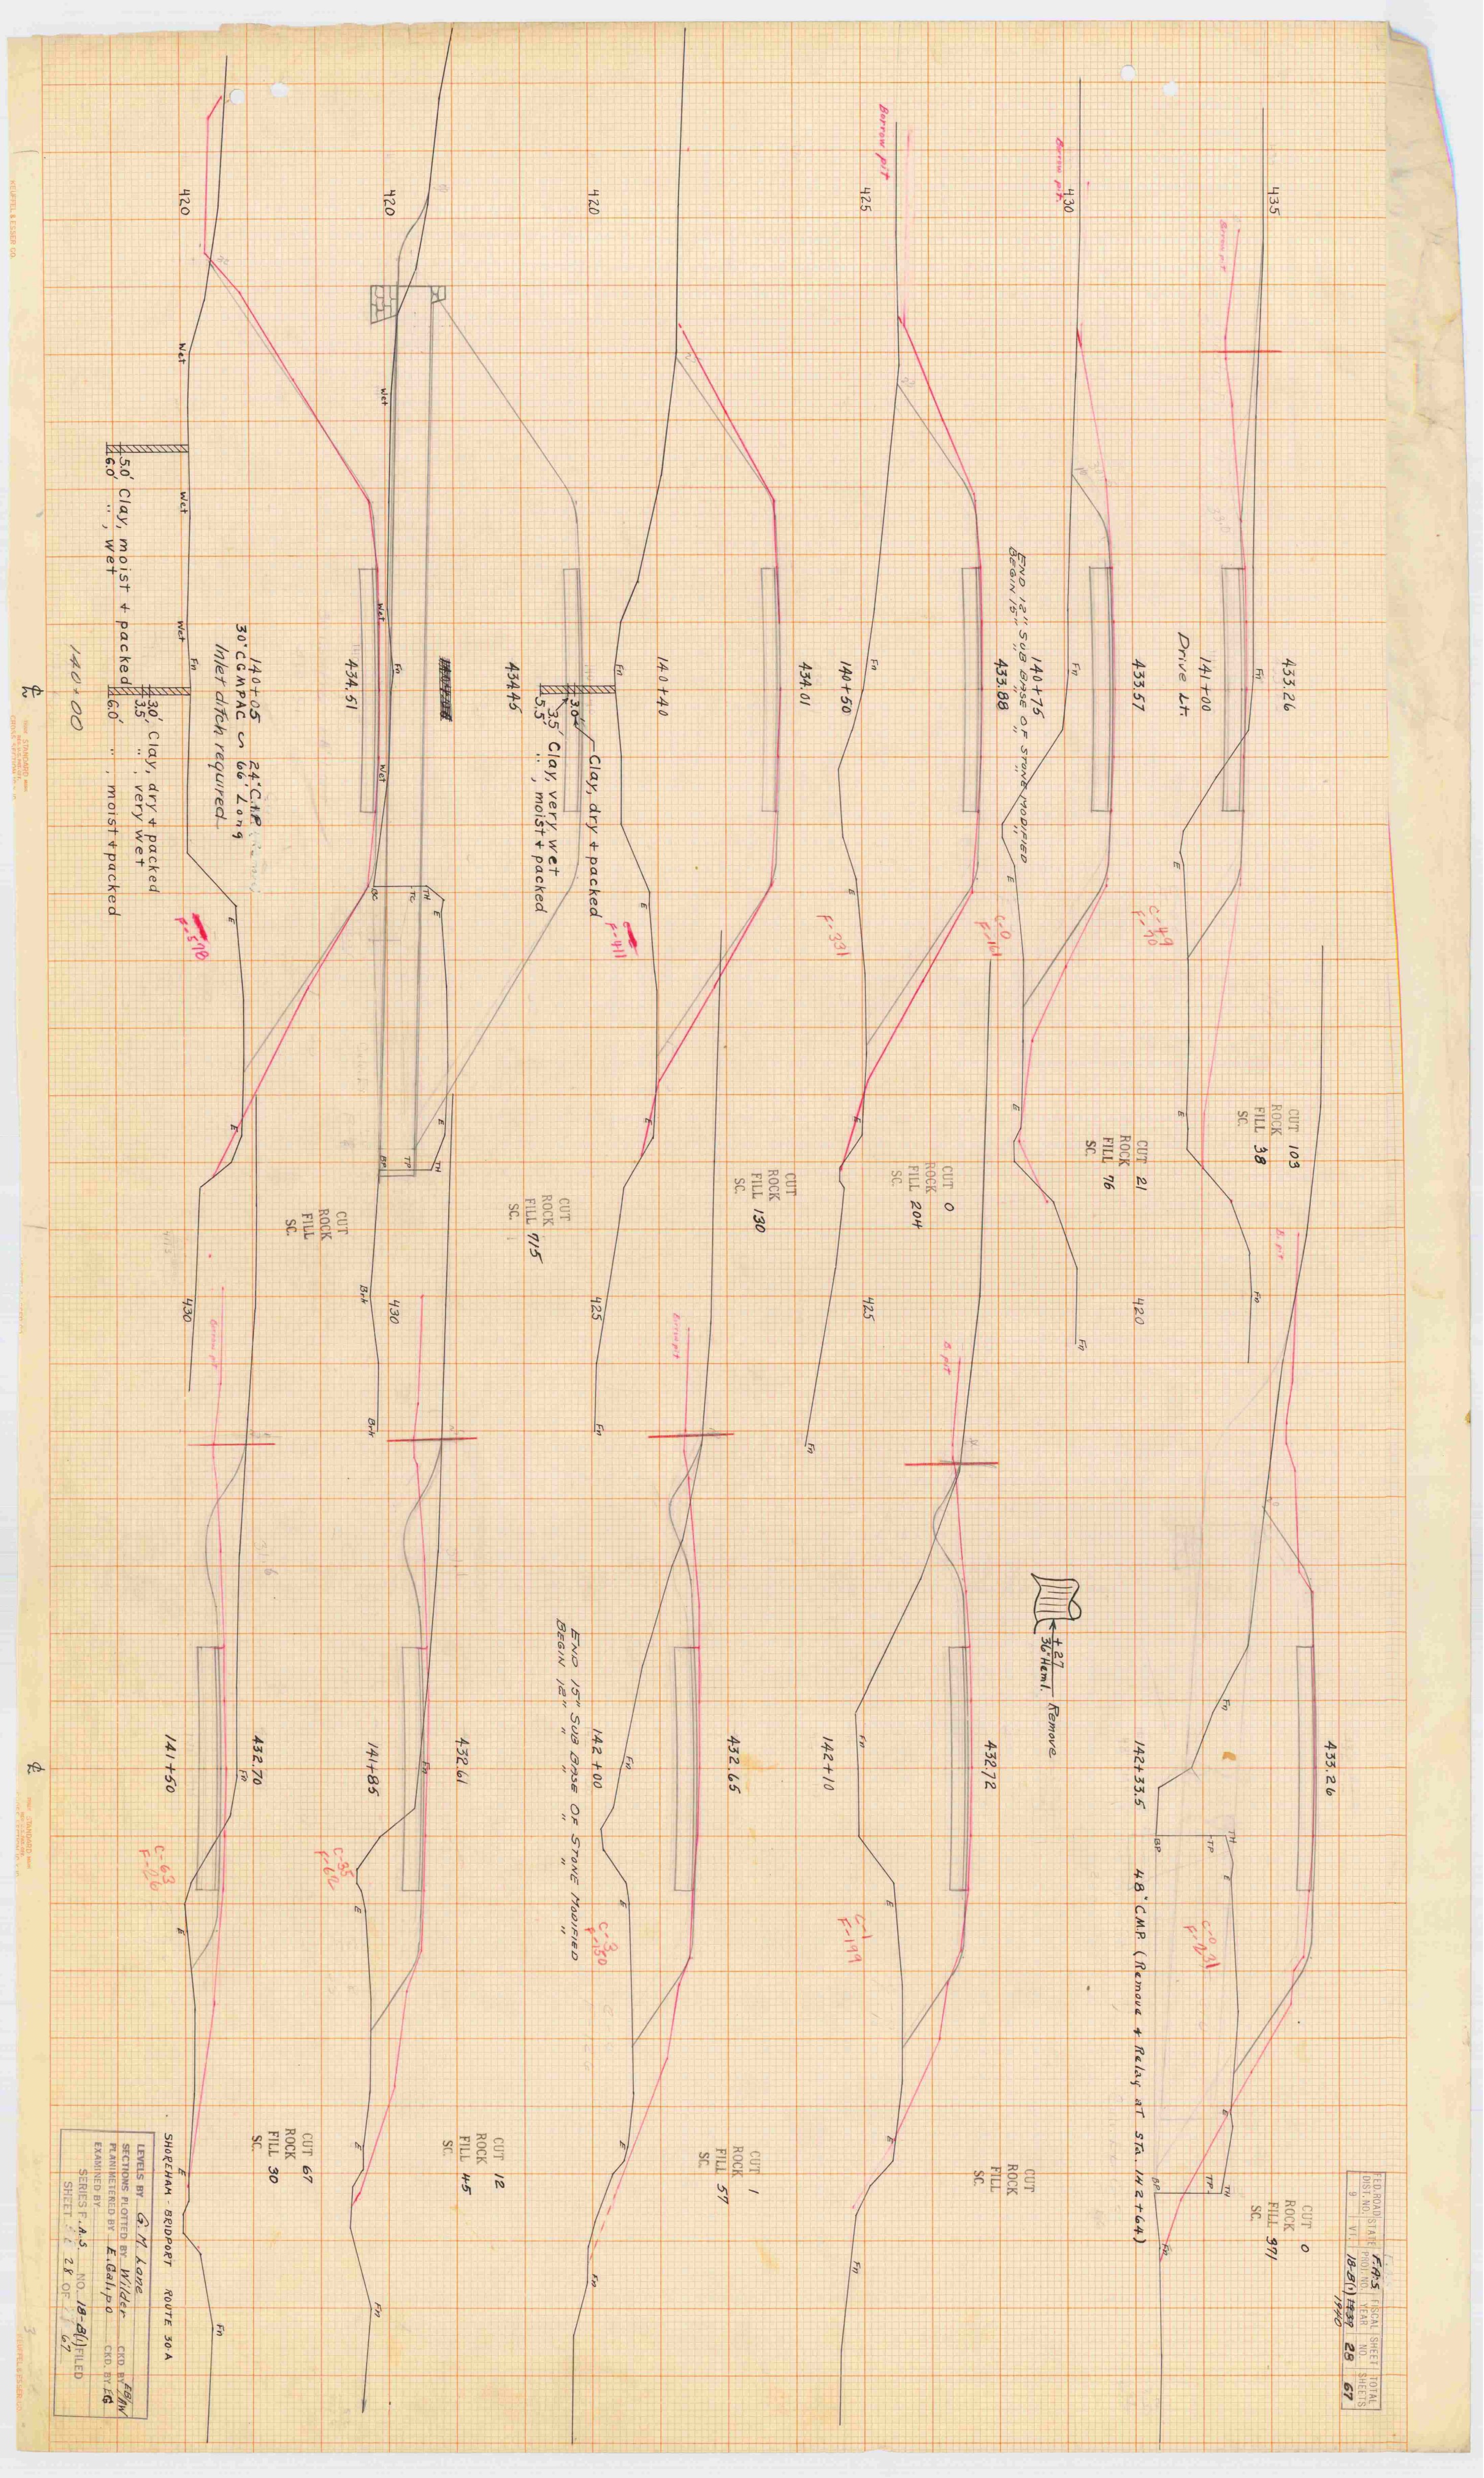 FED. ROAD DIST. NO. STATE PROJ. NO. FISCAL YEAR SHEET NO. TOTAL SHEETS
9 VT. F.A.S. 18-B(1) 1939 28 67
1940
433.26
435
141+00
Drive Lt.
Borrow pit
C-49
F-70
CUT 103
ROCK
FILL 38
SC.
433.57
430
140+75
END 12" SUB BASE OF STONE MODIFIED
BEGIN 15" " " " " "
Borrow pit
C-0
F-161
CUT 21
ROCK
FILL 76
SC.
420
433.88
425
140+50
Borrow pit
F-331
CUT 0
ROCK
FILL 204
SC.
425
434.01
420
140+40
F-411
3.0' Clay, dry + packed
3.5' Clay, very wet
5.5' " , moist + packed
CUT
ROCK
FILL 130
SC.
425
434.45
420
Wet
Wet
Wet
Fn
TH
TC
E
E
TH
TP
BP
Brk
Brk
CUT
ROCK
FILL 915
SC.
430
140+05 24" C.I.P.
30" CGMPAC 66' Long
Inlet ditch required
434.51
420
Wet
Wet
Wet
Fn
E
E
F-578
CUT
ROCK
FILL
SC.
430
5.0' Clay, moist + packed
6.0' " , wet
3.0' Clay, dry + packed
3.5' " , very wet
6.0' " , moist + packed
140+00
℄
433.26
142+33.5
48" C.M.P. (Remove + Relay at Sta. 142+64)
B. pit
Fn
TH
TP
BP
E
E
TH
TP
BP
Fn
C-0
F-231
CUT 0
ROCK
FILL 371
SC.
+27
36" Heml. Remove
432.72
142+10
B. pit
Fn
E
E
Fn
C-1
F-199
CUT
ROCK
FILL
SC.
432.65
142+00
END 15" SUB BASE OF STONE MODIFIED
BEGIN 12" " " "
Borrow pit
Fn
E
E
Fn
C-3
F-150
CUT 1
ROCK
FILL 57
SC.
432.61
141+85
Fn
E
E
Fn
C-35
F-62
CUT 12
ROCK
FILL 45
SC.
432.70
141+50
Borrow pit
Fn
E
E
Fn
C-63
F-26
CUT 67
ROCK
FILL 30
SC.
℄
SHOREHAM - BRIDPORT ROUTE 30-A
LEVELS BY G.M. Lane
SECTIONS PLOTTED BY Wilder CKD. BY
PLANIMETERED BY E. Galipo CKD. BY EG
EXAMINED BY
SERIES F.A.S. NO. 18-B(1) FILED
SHEET 28 OF 67
KEUFFEL & ESSER CO.